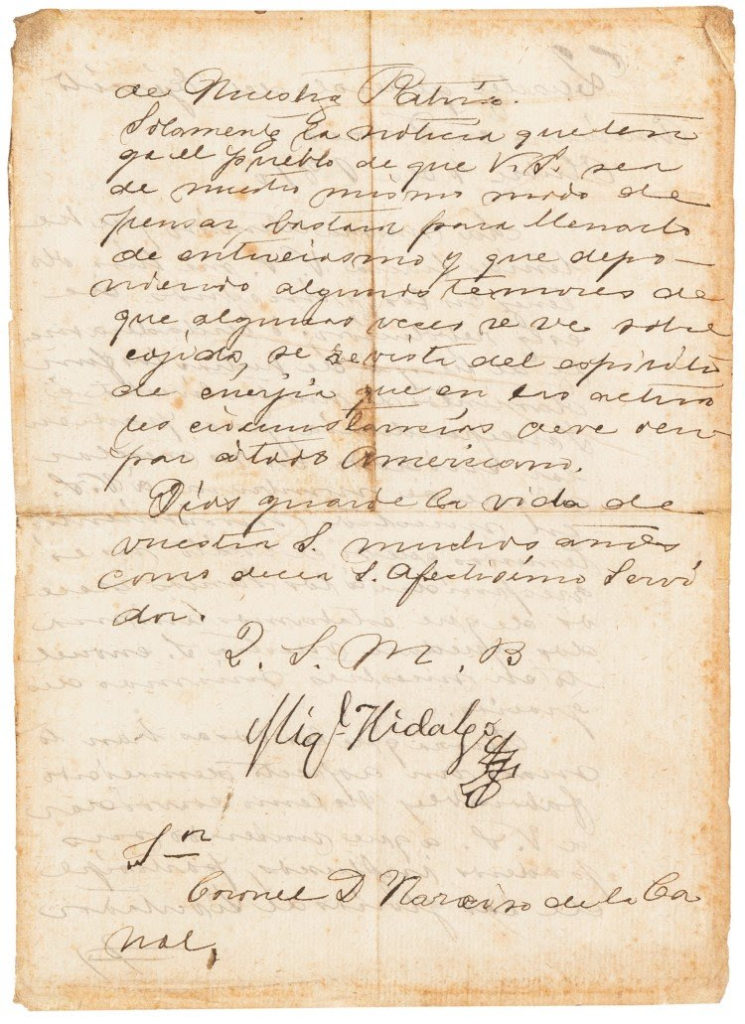 de Nuestra Patria.
Solamente la noticia que ten
ga el pueblo de que V. S. sea
de nuestro mismo modo de
pensar, bastara para llenarlo
de entuciasmo y que depo-
niendo algunos temores de
que algunas veses se ve sobre
cojido, se revista del espiritu
de enerjia que en las actua
les circunstancias deve ocu
par átodo Americano.
Dios guarde la vida de
vuestra S. muchos años
como decea S. Afectisimo Servi
dor.
Q. S. M. B
Migl. Hidalgo
Sor
Coronel D Narciso de la Ca
nal,